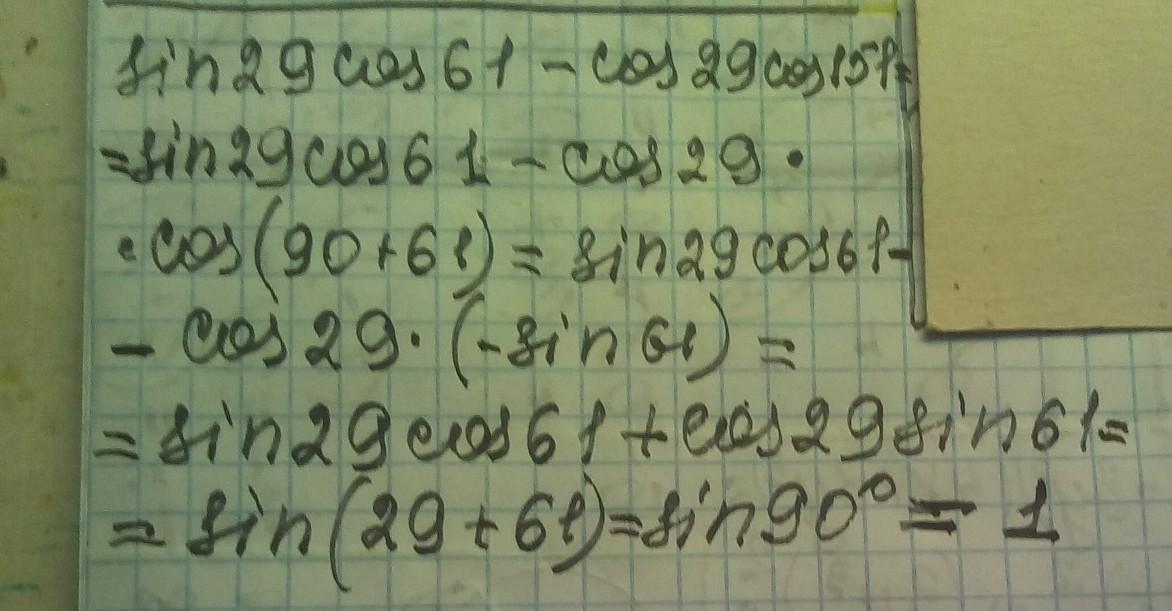 sin29cos61-cos29cos151=
=sin29cos61-cos29·
·cos(90+61)=sin29cos61-
-cos29·(-sin61)=
=sin29cos61+cos29sin61=
=sin(29+61)=sin90°=1